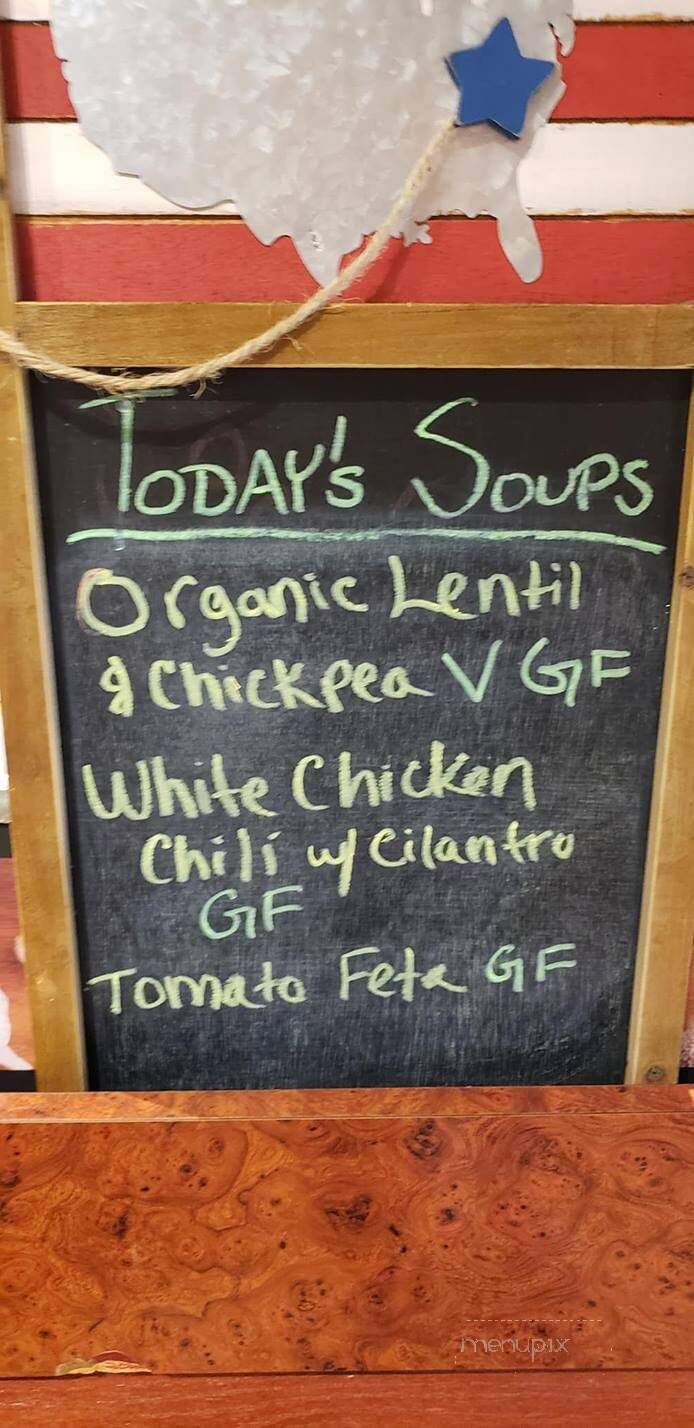 TODAY's SOUPS
Organic Lentil
& Chickpea V GF
White Chicken
Chili w/ Cilantro
GF
Tomato Feta GF
menupix